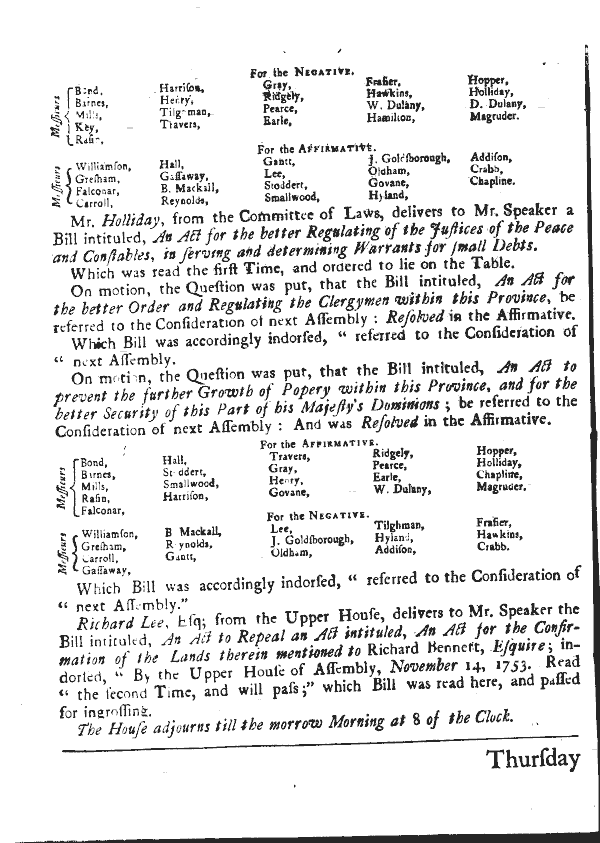 For the NEGATIVE.
Bond, Harriſon, Gray, Fraſier, Hopper,
Barnes, Henry, Ridgely, Hawkins, Holliday,
Meſſieurs Mills, Tilghman, Pearce, W. Dulany, D. Dulany,
Key, Travers, Earle, Hamilton, Magruder.
Raſin,
For the AFFIRMATIVE.
Williamſon, Hall, Gantt, J. Goldſborough, Addiſon,
Meſſieurs Greſham, Gaſſaway, Lee, Oldham, Crabb,
Falconar, B. Mackall, Stoddert, Govane, Chapline.
Carroll, Reynolds, Smallwood, Hyland,
Mr. Holliday, from the Committee of Laws, delivers to Mr. Speaker a
Bill intituled, An Act for the better Regulating of the Juſtices of the Peace
and Conſtables, in ſerving and determining Warrants for ſmall Debts.
Which was read the firſt Time, and ordered to lie on the Table.
On motion, the Queſtion was put, that the Bill intituled, An Act for
the better Order and Regulating the Clergymen within this Province, be
referred to the Conſideration of next Aſſembly : Reſolved in the Affirmative.
Which Bill was accordingly indorſed, “ referred to the Conſideration of
“ next Aſſembly.
On motion, the Queſtion was put, that the Bill intituled, An Act to
prevent the further Growth of Popery within this Province, and for the
better Security of this Part of his Majeſty's Dominions ; be referred to the
Conſideration of next Aſſembly : And was Reſolved in the Affirmative.
For the AFFIRMATIVE.
Bond, Hall, Travers, Ridgely, Hopper,
Barnes, Stoddert, Gray, Pearce, Holliday,
Meſſieurs Mills, Smallwood, Henry, Earle, Chapline,
Raſin, Harriſon, Govane, W. Dulany, Magruder.
Falconar,
For the NEGATIVE.
Williamſon, B Mackall, Lee, Tilghman, Fraſier,
Meſſieurs Greſham, Reynolds, J. Goldſborough, Hyland, Hawkins,
Carroll, Gantt, Oldham, Addiſon, Crabb.
Gaſſaway,
Which Bill was accordingly indorſed, “ referred to the Conſideration of
“ next Aſſembly.”
Richard Lee, Eſq; from the Upper Houſe, delivers to Mr. Speaker the
Bill intituled, An Act to Repeal an Act intituled, An Act for the Confir-
mation of the Lands therein mentioned to Richard Bennett, Eſquire ; in-
dorſed, “ By the Upper Houſe of Aſſembly, November 14, 1753. Read
“ the ſecond Time, and will paſs ;” which Bill was read here, and paſſed
for ingroſſing.
The Houſe adjourns till the morrow Morning at 8 of the Clock.
Thurſday